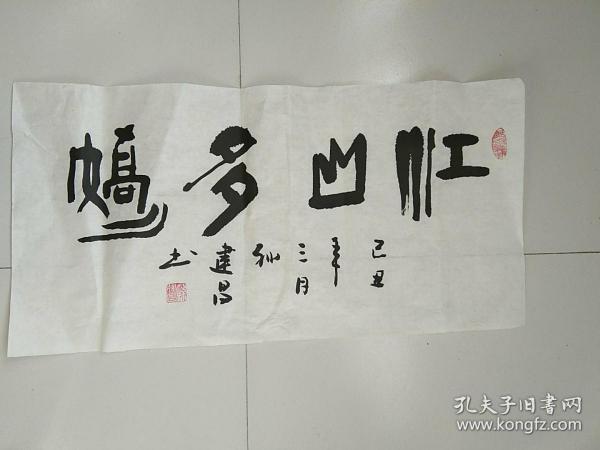 江山多嬌
己丑
年
三月
孙
建昌
书
孔夫子旧书网
www.kongfz.com